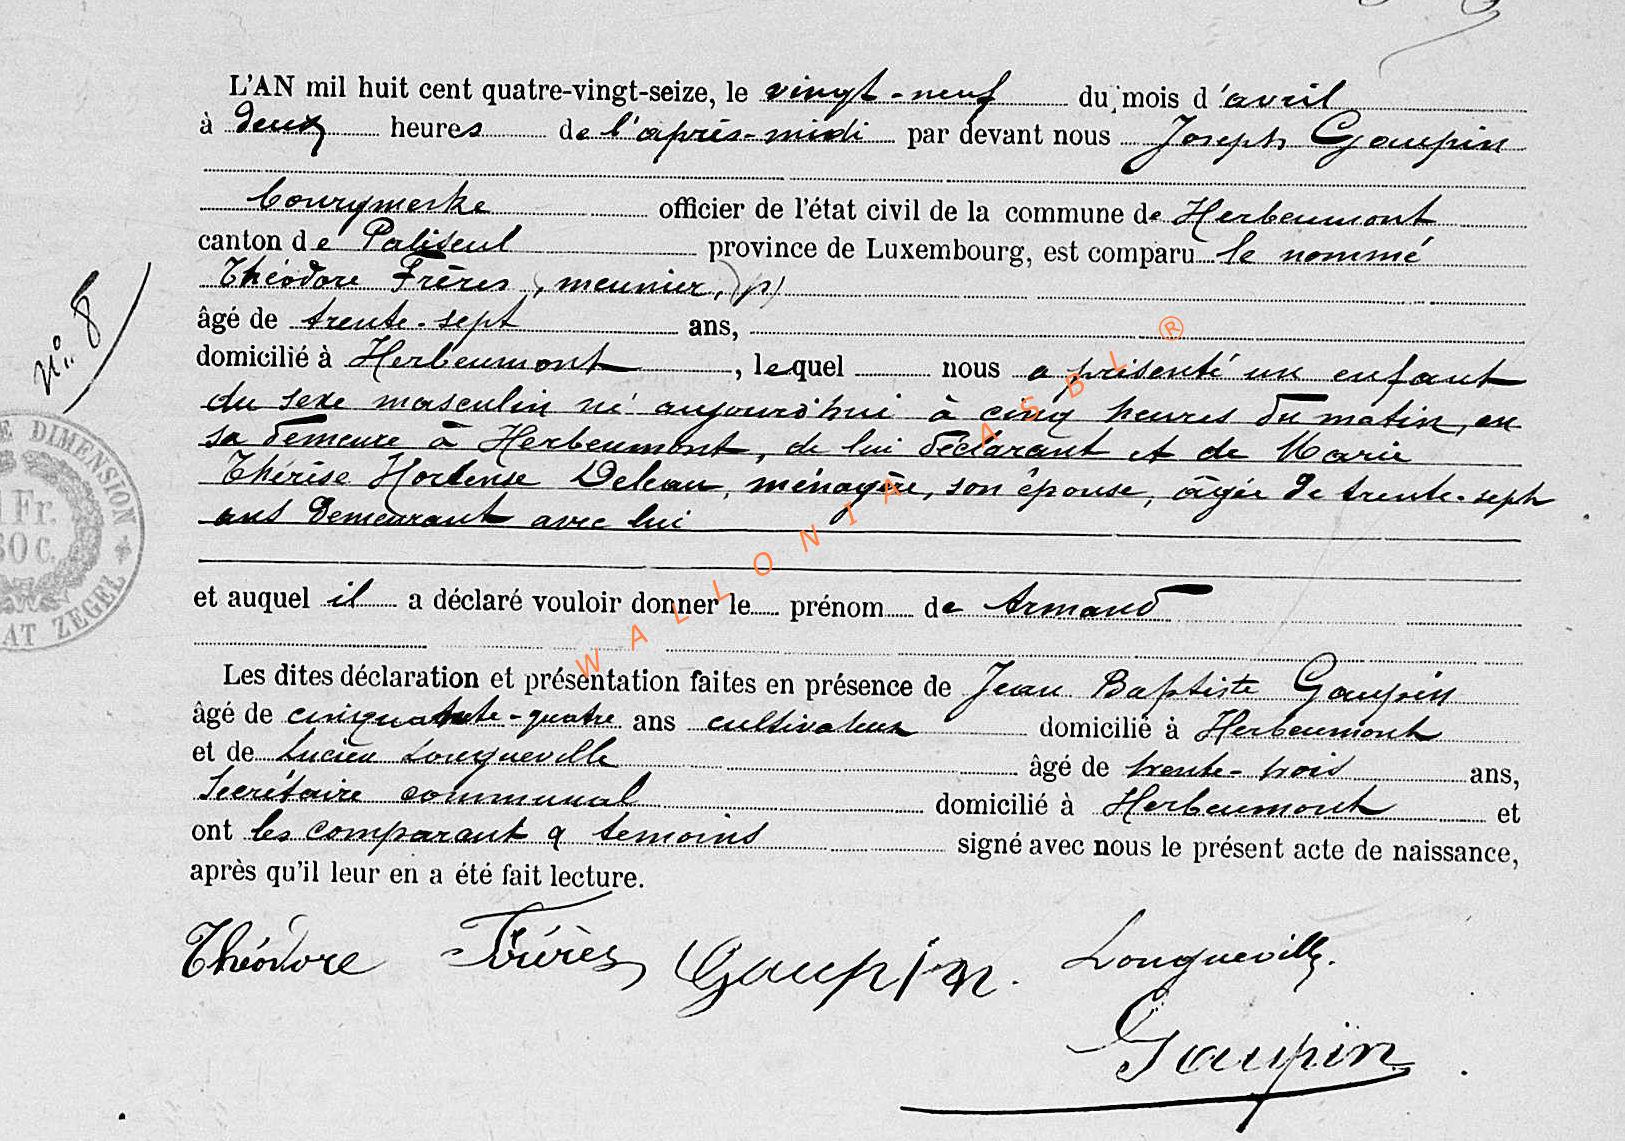 L'AN mil huit cent quatre-vingt-seize, le vingt-neuf du mois d'avril
à deux heures de l'après-midi par devant nous Joseph Gaupin
Bourgmestre officier de l'état civil de la commune de Herbeumont
canton de Paliseul province de Luxembourg, est comparu le nommé
Théodore Frères, meunier,
âgé de trente-sept ans,
domicilié à Herbeumont, lequel nous a présenté un enfant
du sexe masculin né aujourd'hui à cinq heures du matin, en
sa demeure à Herbeumont, de lui déclarant et de Marie
Thérèse Hortense Deleau, ménagère, son épouse, âgée de trente-sept
ans demeurant avec lui
et auquel il a déclaré vouloir donner le prénom de Armand
Les dites déclaration et présentation faites en présence de Jean Baptiste Gaupin
âgé de cinquante-quatre ans cultivateur domicilié à Herbeumont
et de Lucien Longueville âgé de trente-trois ans,
Secrétaire communal domicilié à Herbeumont et
ont les comparant & temoins signé avec nous le présent acte de naissance,
après qu'il leur en a été fait lecture.
Théodore Frères Gaupin. Longueville.
Gaupin
N° 8
E DIMENSION
1 Fr.
50 C.
AT ZEGEL
WALLONIA ASBL ®